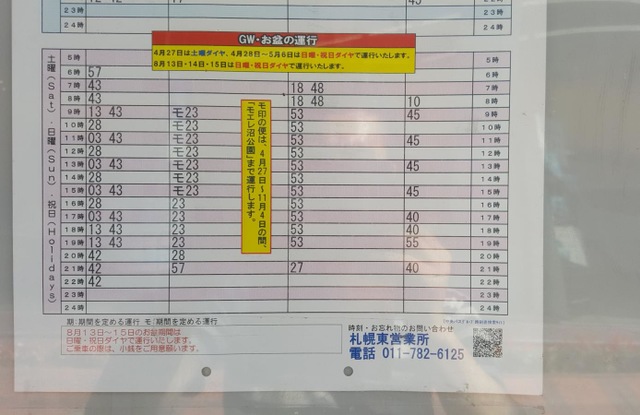 23時 23時
24時 24時
GW・お盆の運行
4月27日は土曜ダイヤ、4月28日～5月6日は日曜・祝日ダイヤで運行いたします。
8月13日・14日・15日は日曜・祝日ダイヤで運行いたします。
土曜(Sat)・日曜(Sun)・祝日(Holidays)
5時 5時
6時 57 6時
7時 43 18 48 7時
8時 43 18 48 10 8時
9時 13 43 モ23 53 45 9時
10時 28 モ23 53 10時
11時 03 43 モ23 53 45 11時
12時 28 モ23 53 12時
13時 03 43 モ23 53 45 13時
14時 28 モ23 53 14時
15時 03 43 モ23 53 45 15時
16時 28 23 53 16時
17時 03 43 23 53 40 17時
18時 13 43 23 53 40 18時
19時 13 43 23 53 55 19時
20時 42 28 20時
21時 42 57 27 40 21時
22時 42 22時
23時 23時
24時 24時
モ印の便は、4月27日～11月4日の間、
「モエレ沼公園」まで運行します。
期:期間を定める運行 モ:期間を定める運行
8月13日～15日のお盆期間は
日曜・祝日ダイヤで運行いたします。
ご乗車の際は、小銭をご用意願います。
時刻・お忘れ物のお問い合わせ
札幌東営業所
電話 011-782-6125